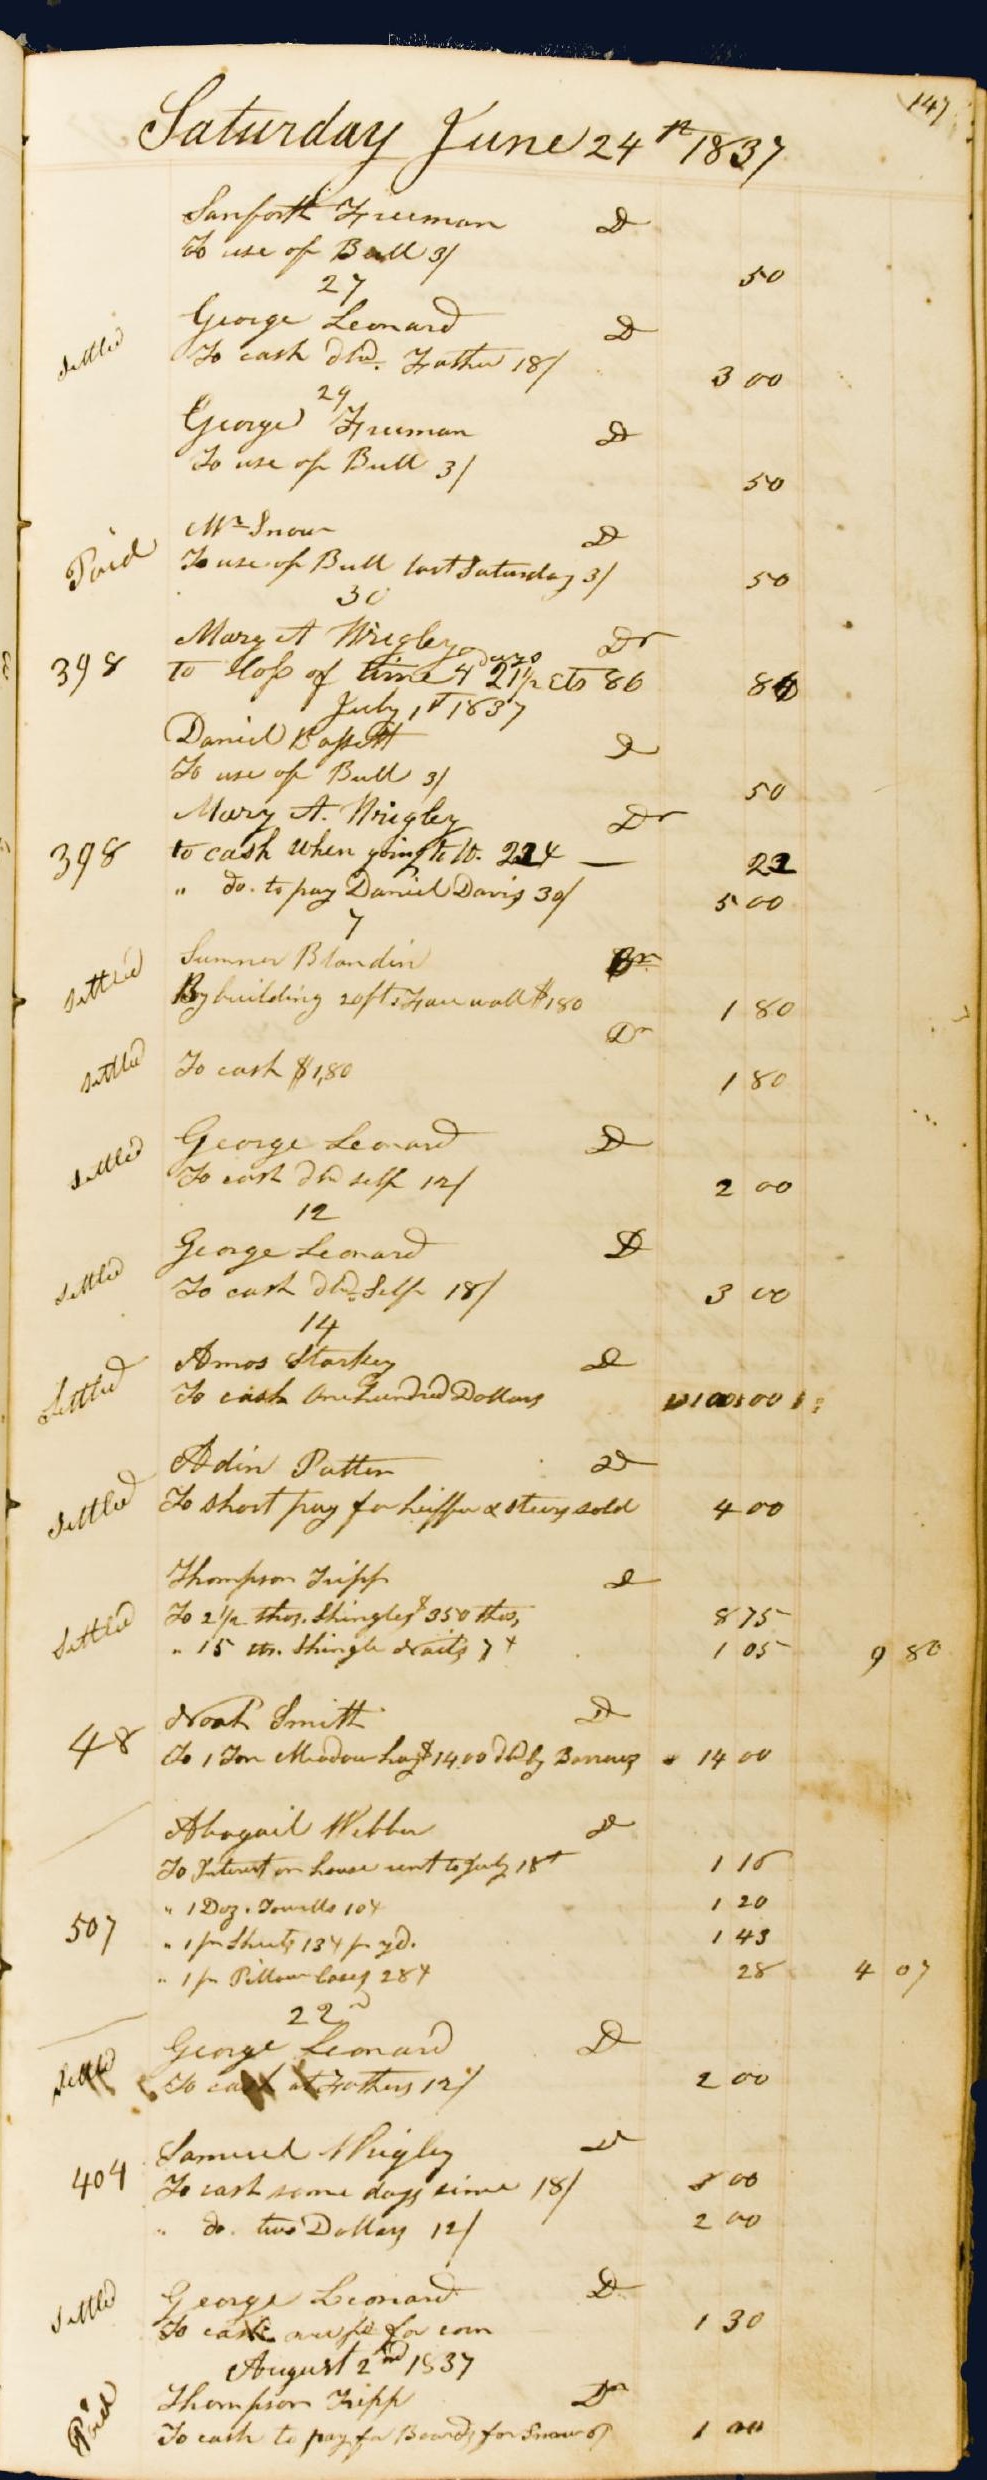 147
Saturday June 24th 1837
Sanforth Freeman D
To use of Bull 3/ 50
27
Settled George Leonard D
To cash dld. Father 18/ 3 00
29
George Freeman D
To use of Bull 3/ 50
Paid Mr Snow D
To use of Bull last Saturday 3/ 50
30
398 Mary A Wrigley Dr
to loss of time 4 days 21 1/2 cts 86 86
July 1st 1837
Daniel Bassett D
To use of Bull 3/ 50
398 Mary A. Wrigley Dr
to cash when going to W. 22
" do. to pay Daniel Davis 30/ 5 00
7
Settled Sumner Blandin
By building 20 fts. Face wall $180 1 80
Dr
Settled To cash $1,80 1 80
Settled George Leonard D
To cash dld self 12/ 2 00
12
Settled George Leonard D
To cash dld. Self 18/ 3 00
14
Settled Amos Starkey D
To cash One hundred Dollars 100 00
Settled Adin Patten D
To short pay for heiffer & steers sold 4 00
Settled Thompson Tripp D
To 2 1/2 thos. Shingles $350 thos, 8 75
" 15 lbs. Shingle Nails 7 1 05 9 80
48 Noah Smith D
To 1 Ton Meadow hay $14.00 dld by Barrows 14 00
507 Abagail Webber D
To Interest on house rent to July 18 1 16
" 1 Doz. Towells 10 1 20
" 1 pr Sheets 13 pr yd. 1 43
" 1 pr Pillow Cases 28 28 4 07
22nd
Settled George Leonard D
To cash at Fathers 12/ 2 00
404 Samuel Wrigley D
To cash some days since 18/ 3 00
" do. two Dollars 12/ 2 00
Settled George Leonard D
To cash for corn 1 30
August 2nd 1837
Paid Thompson Tripp Dr
To cash to pay for Boards for Snow 6/ 1 00